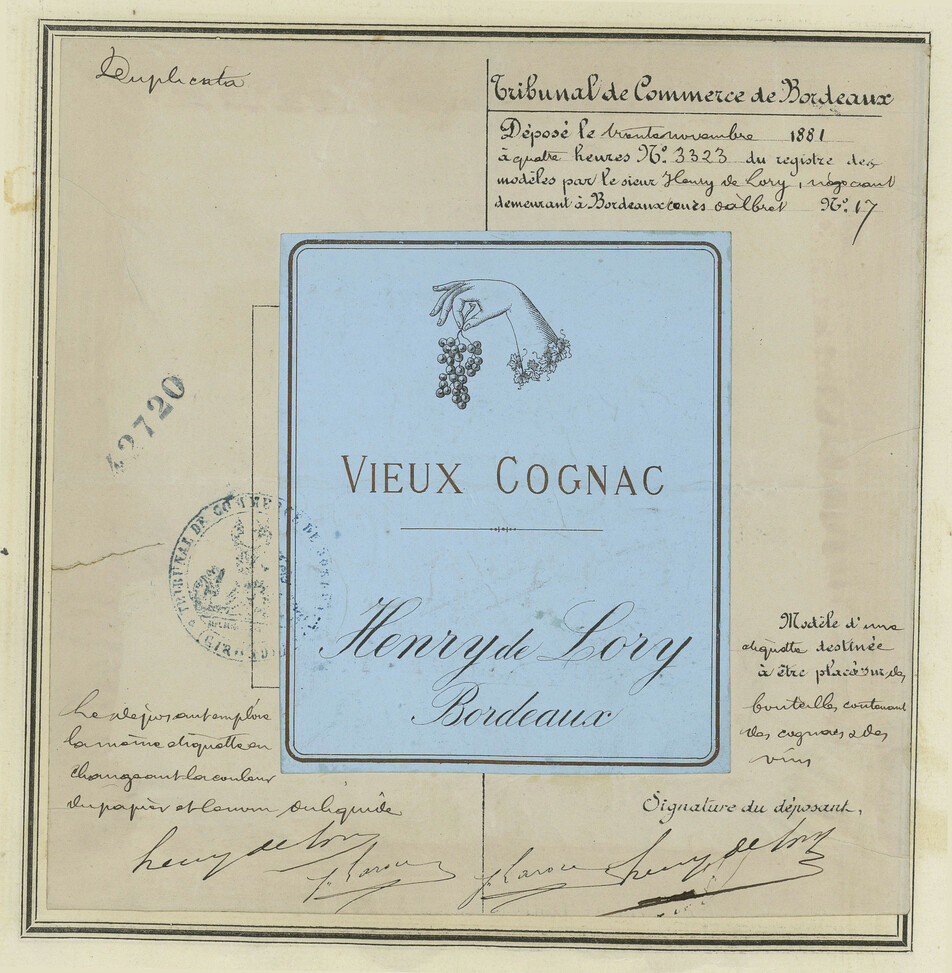 Duplicata
Tribunal de Commerce de Bordeaux
Déposé le trente novembre 1881
à quatre heures No. 3323 du registre des
modèles par le sieur Henry de Lory, négociant
demeurant à Bordeaux cours d'albret No. 17
VIEUX COGNAC
Henry de Lory
Bordeaux
42720
TRIBUNAL DE COMMERCE DE BORDEAUX
(GIRONDE)
Modèle d'une
étiquette destinée
à être placé sur des
bouteilles contenant
des cognacs & des
vins
Le déposant emploie
la même étiquette en
changeant la couleur
du papier et le nom du liquide
Signature du déposant,
henry de Lory
henry de Lory